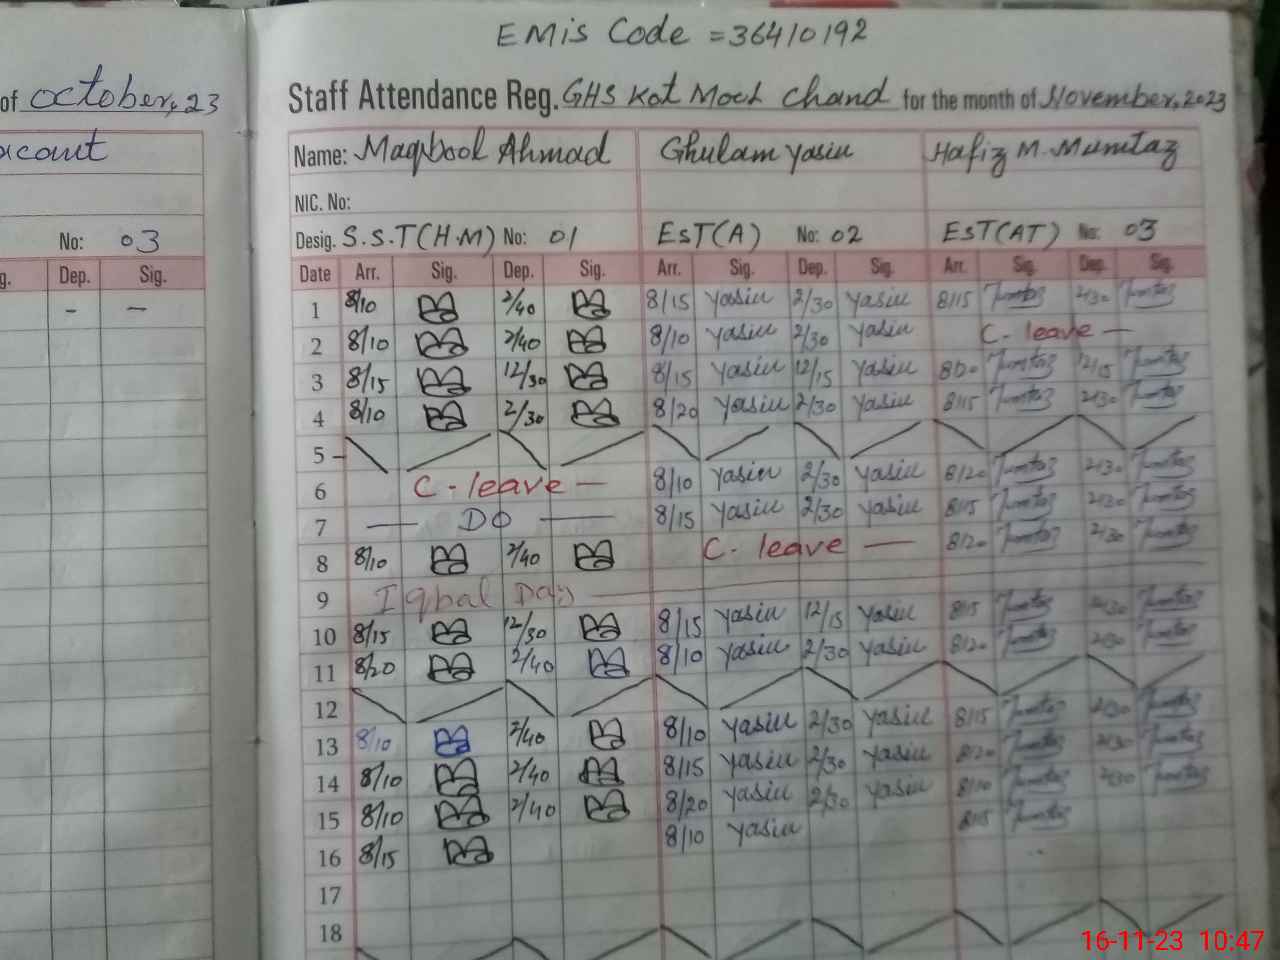 EMis Code = 36410192
of october, 23
Staff Attendance Reg. GHS Kot Moch Chand for the month of November, 2023
Name: Maqbool Ahmad Ghulam yasin Hafiz M. Mumtaz
NIC. No:
No: 03
Desig. S.S.T(H.M) No: 01 EsT(A) No: 02 EST(AT) No: 03
Dep. Sig.
Date Arr. Sig. Dep. Sig. Arr. Sig. Dep. Sig. Arr. Sig. Dep. Sig.
- -
1 8/10 2/40 8/15 yasin 2/30 yasin 8/15 Mumtaz 2/30 Mumtaz
2 8/10 2/40 8/10 yasin 2/30 yasin C- leave -
3 8/15 12/30 8/15 yasin 12/15 yasin 8/20 Mumtaz 12/15 Mumtaz
4 8/10 2/30 8/20 yasin 2/30 yasin 8/15 Mumtaz 2/30 Mumtaz
5 -
6 C-leave - 8/10 yasin 2/30 yasin 8/20 Mumtaz 2/30 Mumtaz
7 - DO - 8/15 yasin 2/30 yasin 8/15 Mumtaz 2/30 Mumtaz
8 8/10 2/40 C- leave - 8/20 Mumtaz 2/30 Mumtaz
9 Iqbal Day
10 8/15 12/30 8/15 yasin 12/15 yasin 8/15 Mumtaz Mumtaz
11 8/20 2/40 8/10 yasin 2/30 yasin 8/20 Mumtaz 2/30 Mumtaz
12
13 8/10 2/40 8/10 yasin 2/30 yasin 8/15 Mumtaz 2/30 Mumtaz
14 8/10 2/40 8/15 yasin 2/30 yasin 8/20 Mumtaz 2/30 Mumtaz
15 8/10 2/40 8/20 yasin 2/30 yasin 8/10 Mumtaz 2/30 Mumtaz
16 8/15 8/10 yasin 8/15 Mumtaz
17
18
16-11-23 10:47